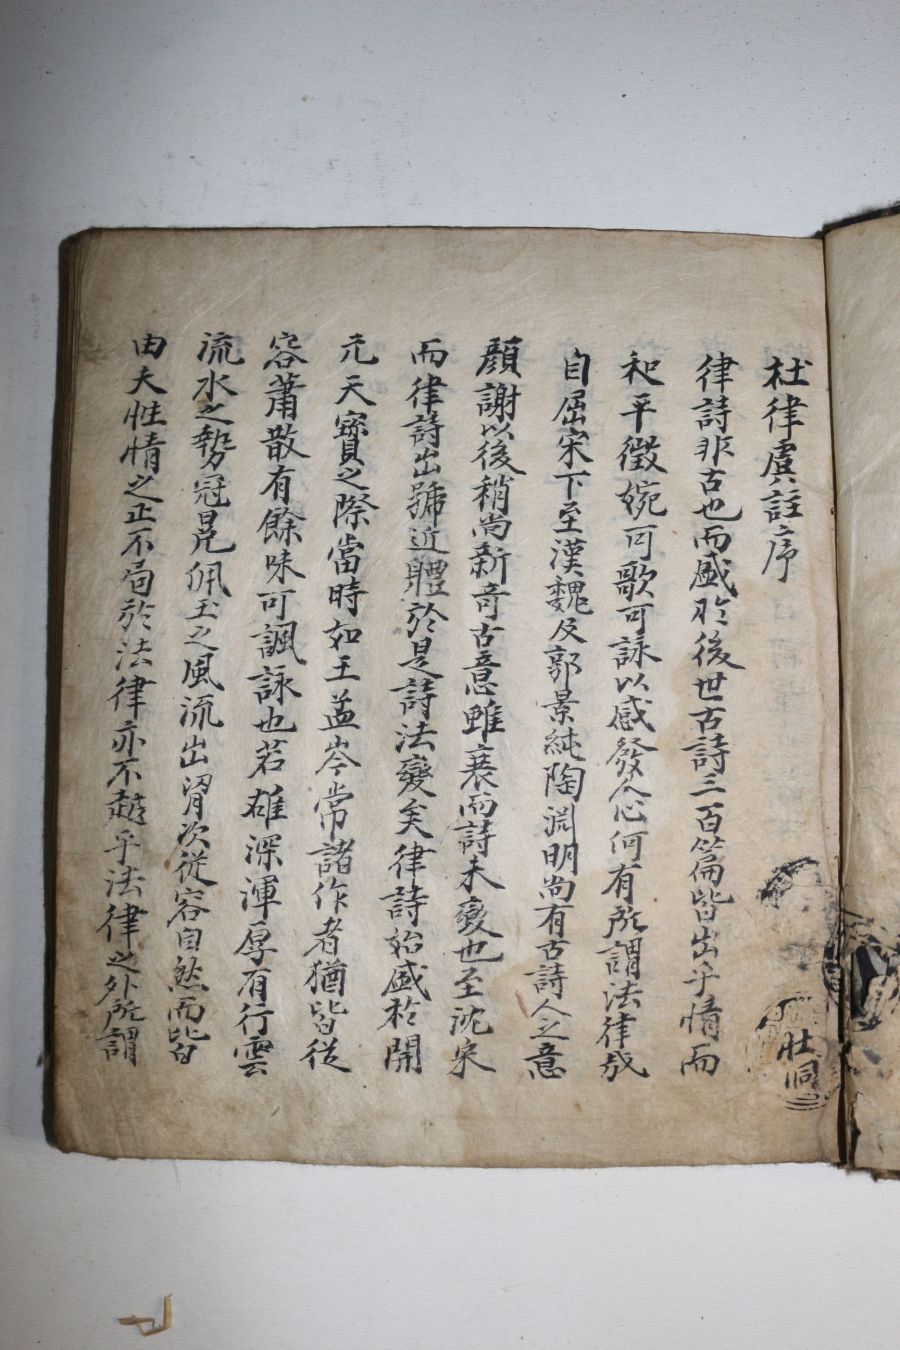 杜律虞註序
律詩非古也而盛於後世古詩三百篇皆出乎情而
和平徵婉可歌可詠以感發人心何有所謂法律哉
自屈宋下至漢魏及郭景純陶淵明尚有古詩人之意
顏謝以後稍尚新奇古意雖衰而詩未變也至沈宋
而律詩出號近體於是詩法變矣律詩始盛於開
元天寶之際當時如王孟岑常諸作者猶皆從
容蕭散有餘味可諷詠也若雄深渾厚有行雲
流水之勢冠冕佩玉之風流出胷次從容自然而皆
由夫性情之正不局於法律亦不越乎法律之外所謂
壯洞